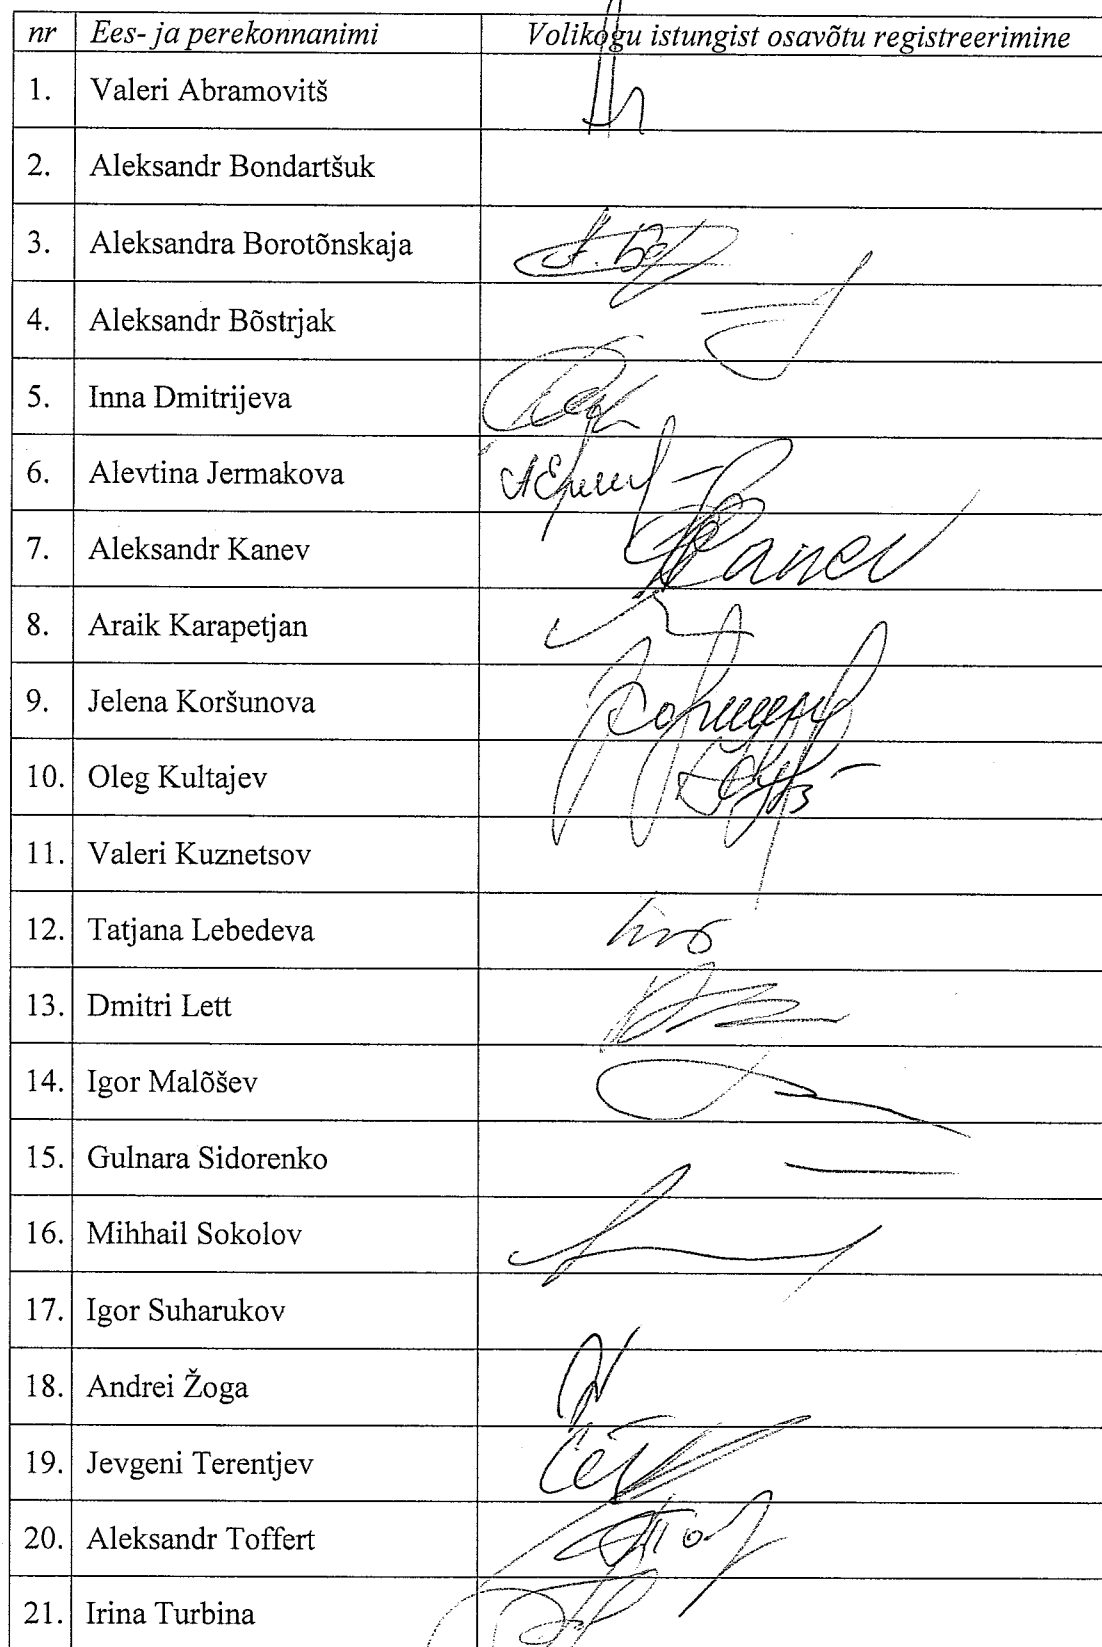 nr Ees- ja perekonnanimi Volikogu istungist osavõtu registreerimine
1. Valeri Abramovitš
2. Aleksandr Bondartšuk
3. Aleksandra Borotõnskaja
4. Aleksandr Bõstrjak
5. Inna Dmitrijeva
6. Alevtina Jermakova
7. Aleksandr Kanev
8. Araik Karapetjan
9. Jelena Koršunova
10. Oleg Kultajev
11. Valeri Kuznetsov
12. Tatjana Lebedeva
13. Dmitri Lett
14. Igor Malõšev
15. Gulnara Sidorenko
16. Mihhail Sokolov
17. Igor Suharukov
18. Andrei Žoga
19. Jevgeni Terentjev
20. Aleksandr Toffert
21. Irina Turbina